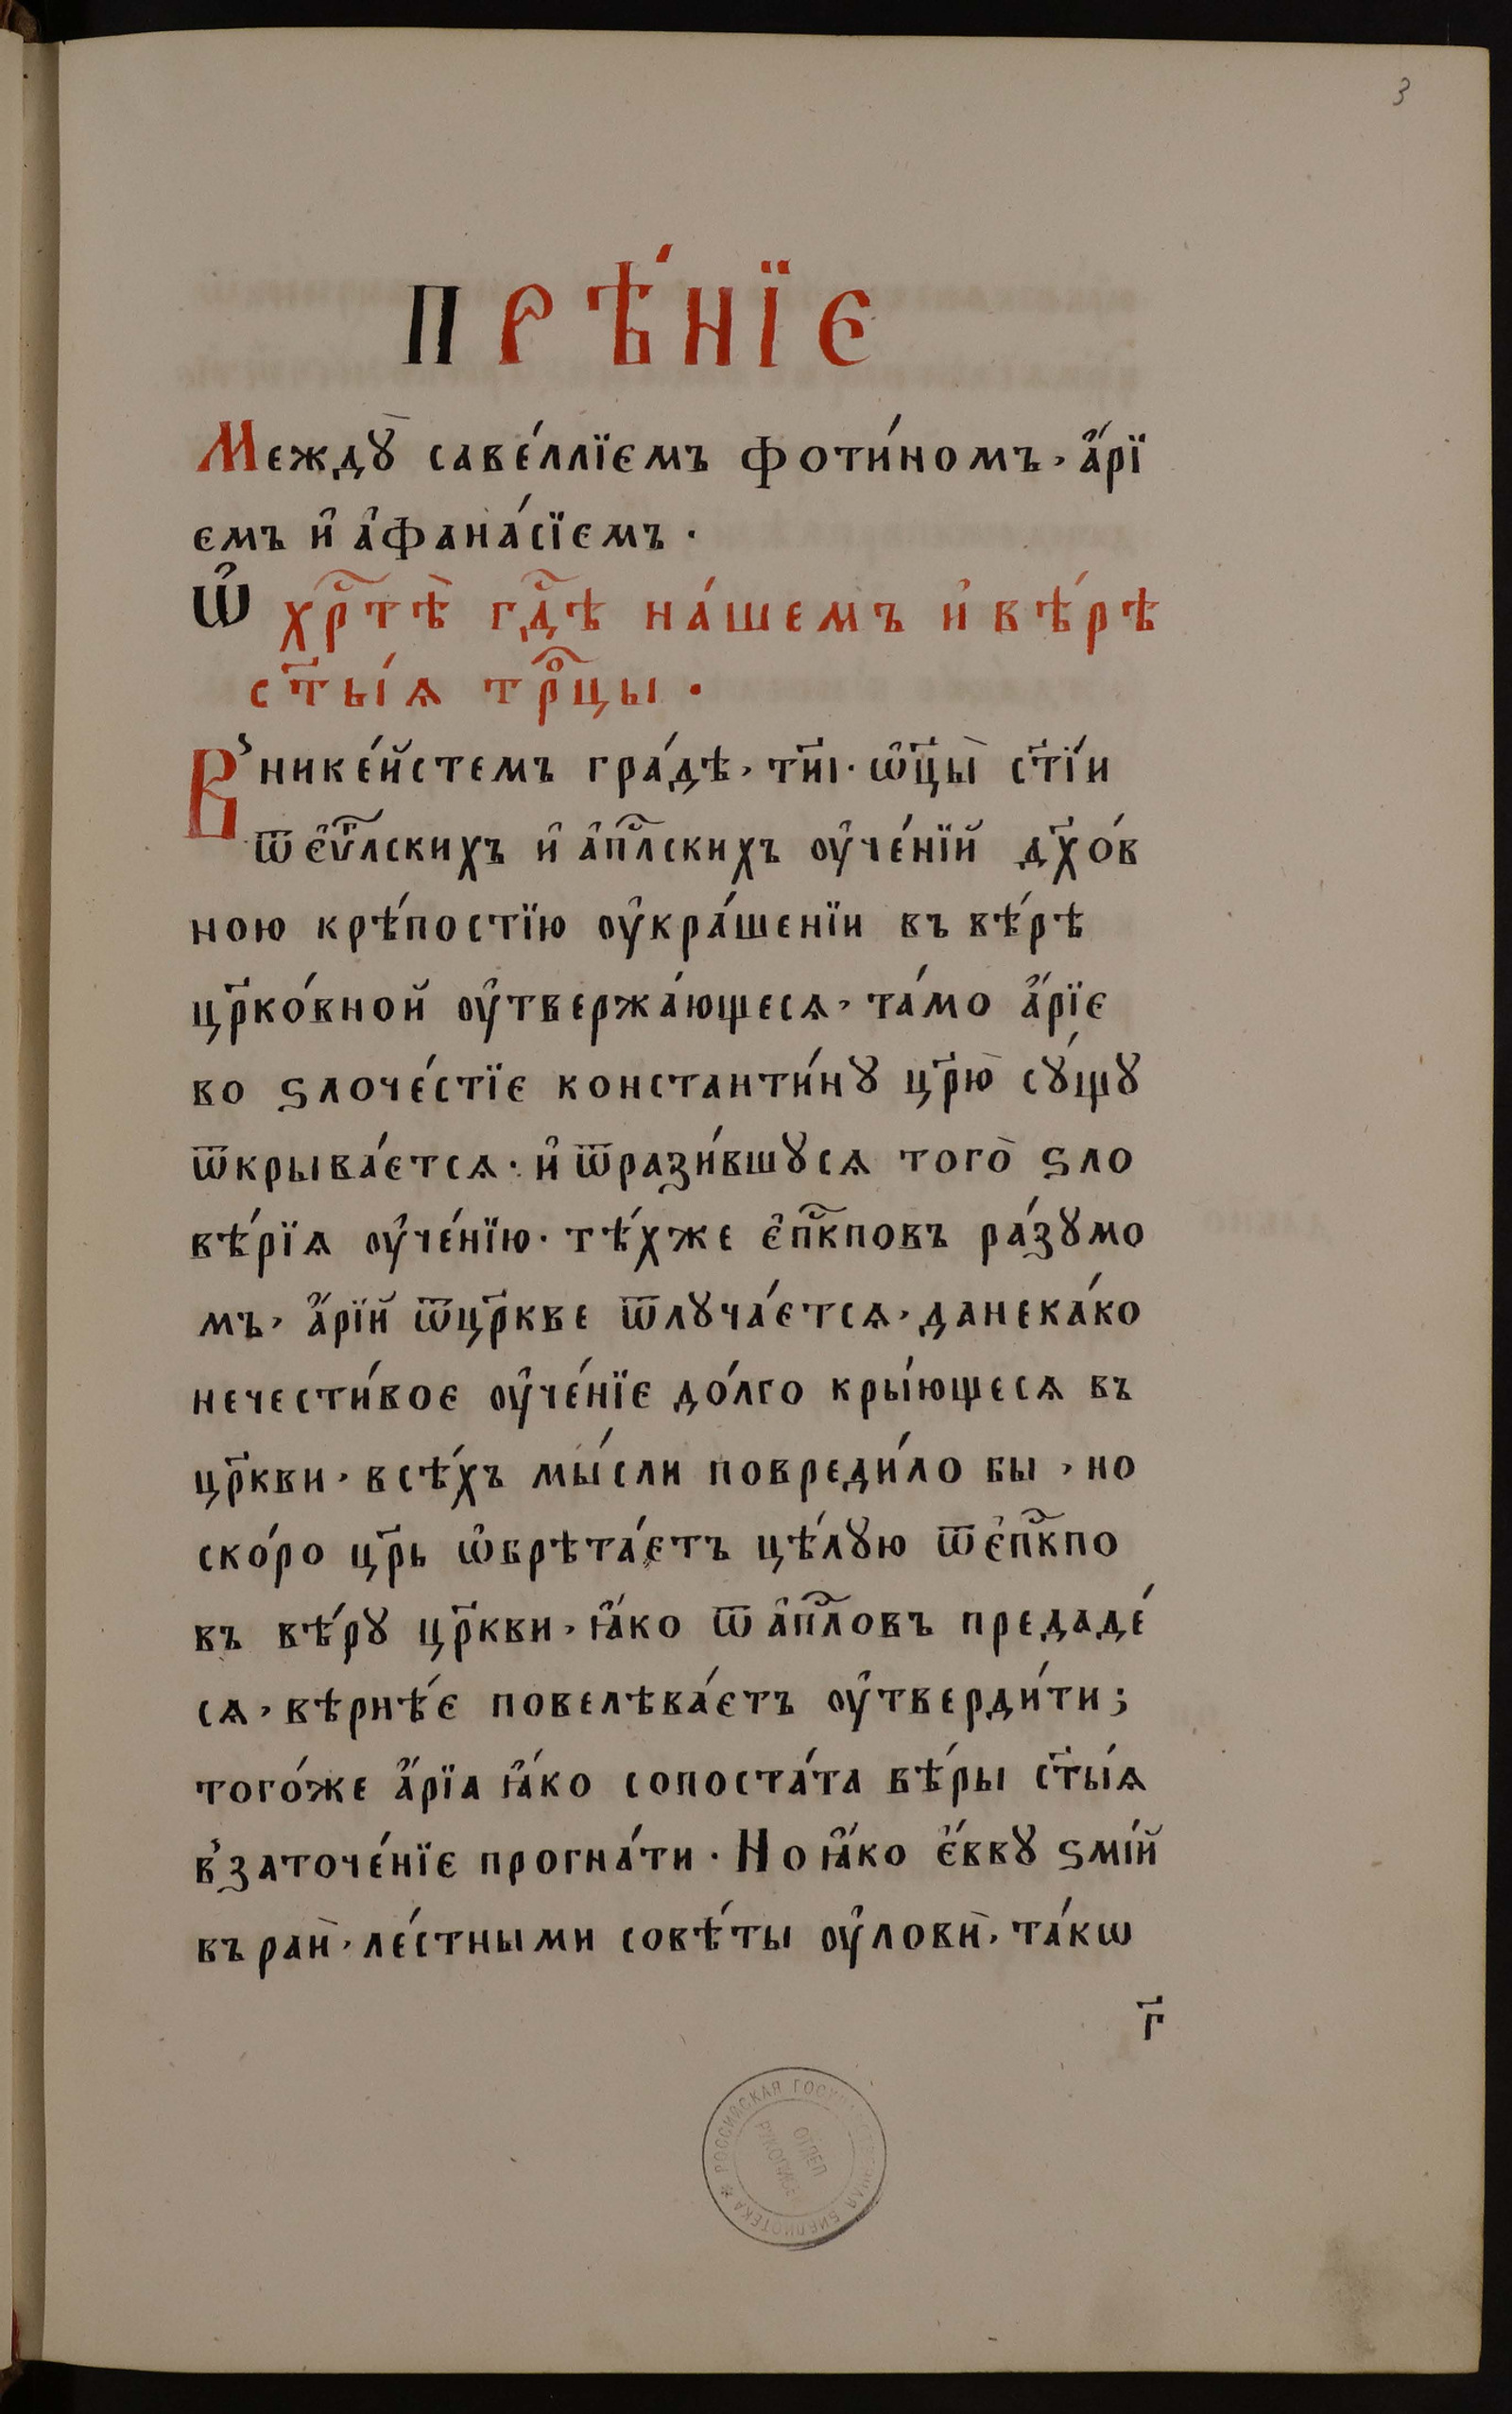 3
ПРѢ́НЇЕ
Междꙋ̀ саве́ллїемъ фоти́номъ, а҆́рї
емъ и҆ а҆фана́сїемъ.
Ѡ҆ хрⷭ҇тѣ̀ гдⷭ҇ѣ на́шемъ и҆ вѣ́рѣ
ст҃ы́ѧ трⷪ҇цы.
В̾ нике́йстемъ гра́дѣ, тн҃і. ѡ҆ц҃ы̀ ст҃і́и
ѿ є҆ѵⷢ҇лскихъ и҆ а҆пⷭ҇лскихъ оу҆че́нїй дх҃о́в
ною крѣ́постїю оу҆кра́шенїи въ вѣ́рѣ
цр҃ко́вной оу҆твержа́ющесѧ, та́мо а҆́рїе
во ѕлоче́стїе константи́нꙋ цр҃ю̀ сꙋ́щꙋ
ѿкрыва́етсѧ. и҆ ѿрази́вшꙋсѧ того̀ ѕло
вѣ́рїѧ оу҆че́нїю. тѣ́хже є҆пⷭ҇кповъ ра́зꙋмо
мъ, а҆́рїй ѿцр҃кве ѿлꙋча́етсѧ, данека́ко
нечести́вое оу҆че́нїе до́лго кры́ющесѧ въ
цр҃кви, всѣ́хъ мы́сли повреди́ло бы, но
ско́ро цр҃ь ѡ҆брѣта́етъ цѣ́лꙋю ѿ є҆пⷭ҇кпо
въ вѣ́рꙋ цр҃кви, ꙗ҆́ко ѿ а҆пⷭ҇ловъ предаде́
сѧ, вѣрнѣ́е повелѣва́етъ оу҆тверди́ти;
того́же а҆́рїа ꙗ҆́ко сопоста́та вѣ́ры ст҃ы́ѧ
в̾ заточе́нїе прогна́ти. Но ꙗ҆́ко є҆́ввꙋ ѕмі́й
въ раѝ, ле́стными совѣ́ты оу҆ловѝ, та́кѡ
г҃
РОССИЙСКАЯ ГОСУДАРСТВЕННАЯ БИБЛИОТЕКА *
ОТДЕЛ
РУКОПИСЕЙ